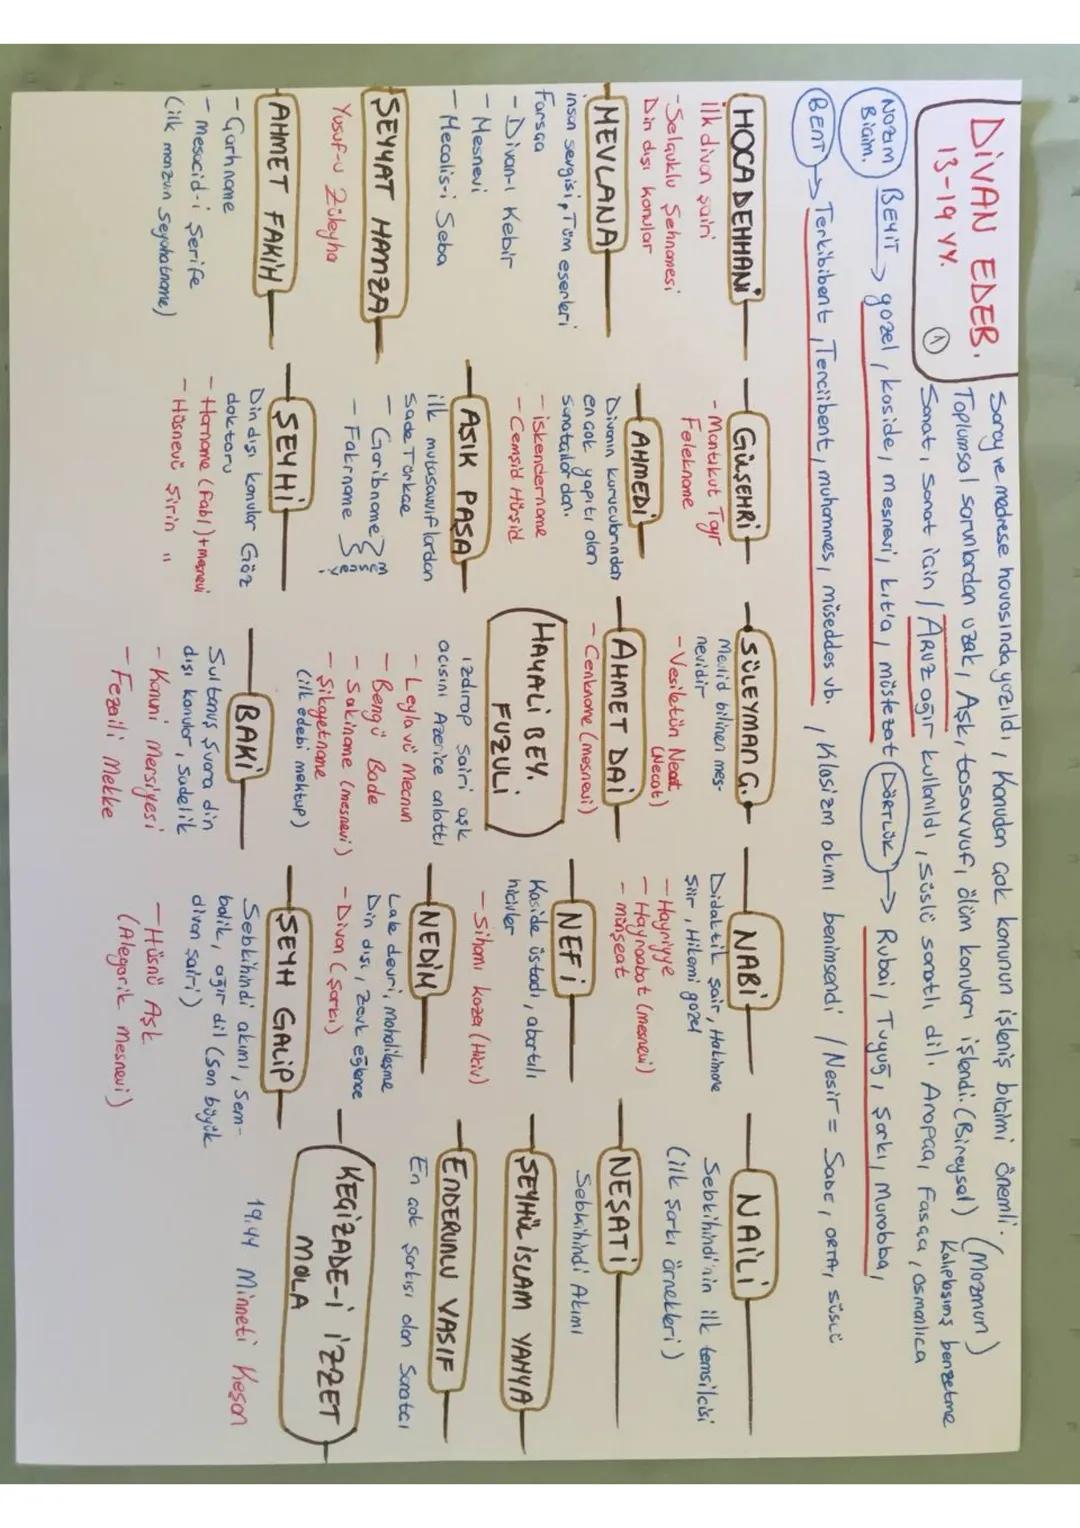 DİVAN EDEB.
13-19 YY.
1
Saray ve medrese havasında yazıldı, Konudan çok konunun işleniş biçimi önemli. (Mazmun)
Toplumsal sorunlardan uzak, Aşk, tasavvufi, ölüm konuları işlendi. (Bireysel) Kalıplaşmış benzetme
Sanat, Sanat için / ARUZ ağır kullanıldı, süslü sanatlı dil. Arapça, Fasça, Osmanlıca
Nazım Biçim.
BEYİT → gazel, kaside, mesnevi, kıt'a, müstezat
DÖRTLÜK → Rubai, Tuyuğ, şarkı, Murabba,
BENT → Terkibibent, Terciibent, muhammes, müseddes vb. / Klasizm akımı benimsendi / Nesir = SADE, ORTA, SÜSLÜ
HOCA DEHHANİ
ilk divan şairi
- Selçuklu Şehnamesi
Din dışı konular
GÜLŞEHRİ
- Mantıkut Tayr
Felekname
SÜLEYMAN Ç.
Mevlid bilinen mes-
nevidir
- Vesiletün Necat
(Necat)
NABİ
Didaktik şair, Hakimane
şiir, Hikemi gazel
- Hayriyye
- Hayrabat (mesnevi)
- münşeat
NAİLİ
Sebkihindi'nin ilk temsilcisi
(ilk şarkı örnekleri)
MEVLANA
insan sevgisi, Tüm eserleri
Farsça
- Divan-ı Kebir
- Mesnevi
- Mecalis-i Seba
AHMEDİ
Divanın kurucularından
en çok yapıtı olan
sanatçılardan.
- iskendername
- Cemşid Hürşid
AHMET DAİ
- Cenkname (mesnevi)
NEFİ
Kaside üstadı, abartılı
hicivler
- Sihamı kaza (Hiciv)
NEŞATİ
Sebkihindi Akımı
ŞEYYAT HAMZA
Yusuf-u Züleyha
AŞIK PAŞA
ilk mutasavvıflardan
Sade Türkçe
- Garibname
- Fakrname
HAYALİ BEY.
FUZULİ
ızdırap şairi aşk
acısını Azerice anlattı
- Leyla vü Mecnun
- Bengü Bade
- Sakiname (mesnevi)
- Şikayetname
(ilk edebi mektup)
NEDİM
Lale devri, mahallileşme
Din dışı, zevk eğlence
- Divan (şarkı)
ŞEYHÜLİSLAM YAHYA
ENDERUNLU VASIF
En çok şarkısı olan Sanatçı
AHMET FAKİH
- Çarhname
- mesacid-i şerife
(ilk manzun seyahatname)
ŞEYHİ
Din dışı konular Göz
doktoru
- Harname (Fabl) + mesnevi
- Hüsnevü Şirin "
BAKİ
Sultanüş Şuara din
dışı konular, Sadelik
- Kanuni Mersiyesi
- Fezaili Mekke
ŞEYH GALİP
Sebkihindi akımı, Sem-
bolik, ağır dil (Son büyük
divan şairi)
- Hüsnü Aşk
(Alegorik mesnevi)
KEÇİZADE-İ İZZET
MOLA
19.44 Minneti Keşan